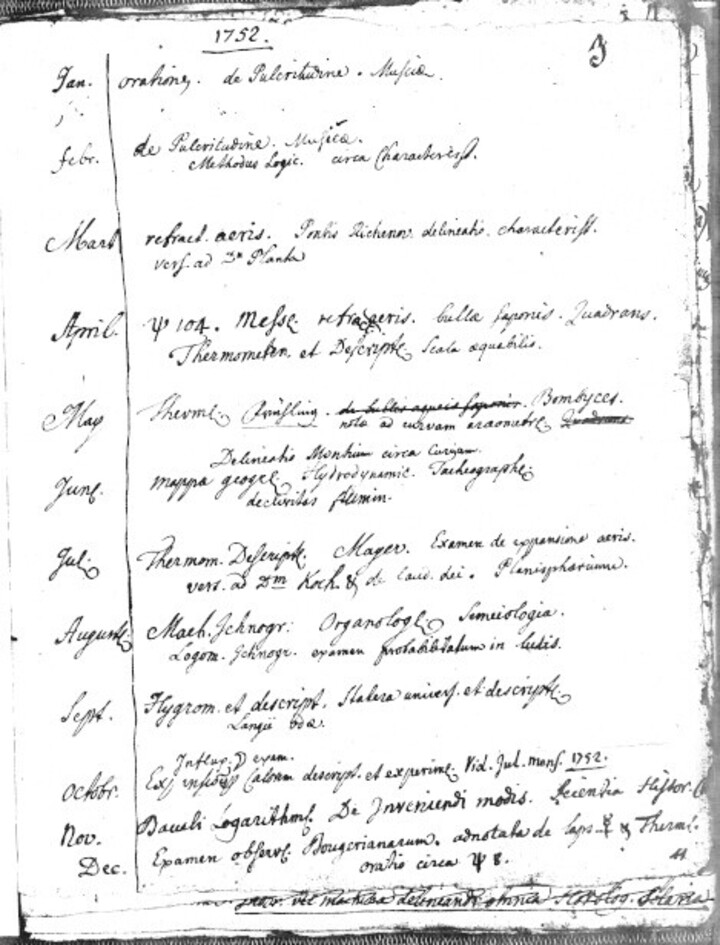 1752.
3
Jan. orationes. de Pulcritudine. Musicæ
febr. de Pulcritudine. Musicæ.
Methodus Logic. circa Characterist.
Mart refract. aeris. Pontis delineatio. characterist.
vers. ad Planta
April. Ψ 104. Messe refrac aeris. bullæ saponis. Quadrans.
Thermometen. et Descript. Scala æquabilis.
May Therm. Frühling. de bullis aqueis saponis. Bombyces.
notæ ad curvam aræometr. Quadrans
Delineatio Montium circa Curiam.
Jun. mappa geogr. Hydrodynamic. Tacheographe
declivitas flumin.
Jul. Thermom. Descript. Mayer. Examen de expansione aeris.
vers. ad Dm Koch. & de laud. dei. Planisphærium.
August. Math. Ichnogr: Organolog. Semeiologia.
Logom. Ichnogr. examen probabilitatum in ludis.
Sept. Hygrom. et descript. Statera univers. et descript.
Langii odæ
Influx. ☽ exam.
Octobr. Calorem descript. et experim. Vid. Jul. mens. 1752.
Nov. Baculi Logarithm. De Inveniendi modis. Scientia Histor.
Dec. Examen observ. Bougerianarum. adnotata de & Therm.
oratio circa Ψ 8. 44
vel machina delineandi omnia Horolog. Solaria